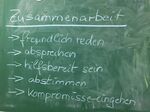 Zusammenarbeit
→ freundlich reden
→ absprechen
→ hilfsbereit sein
→ abstimmen
→ Kompromisse eingehen